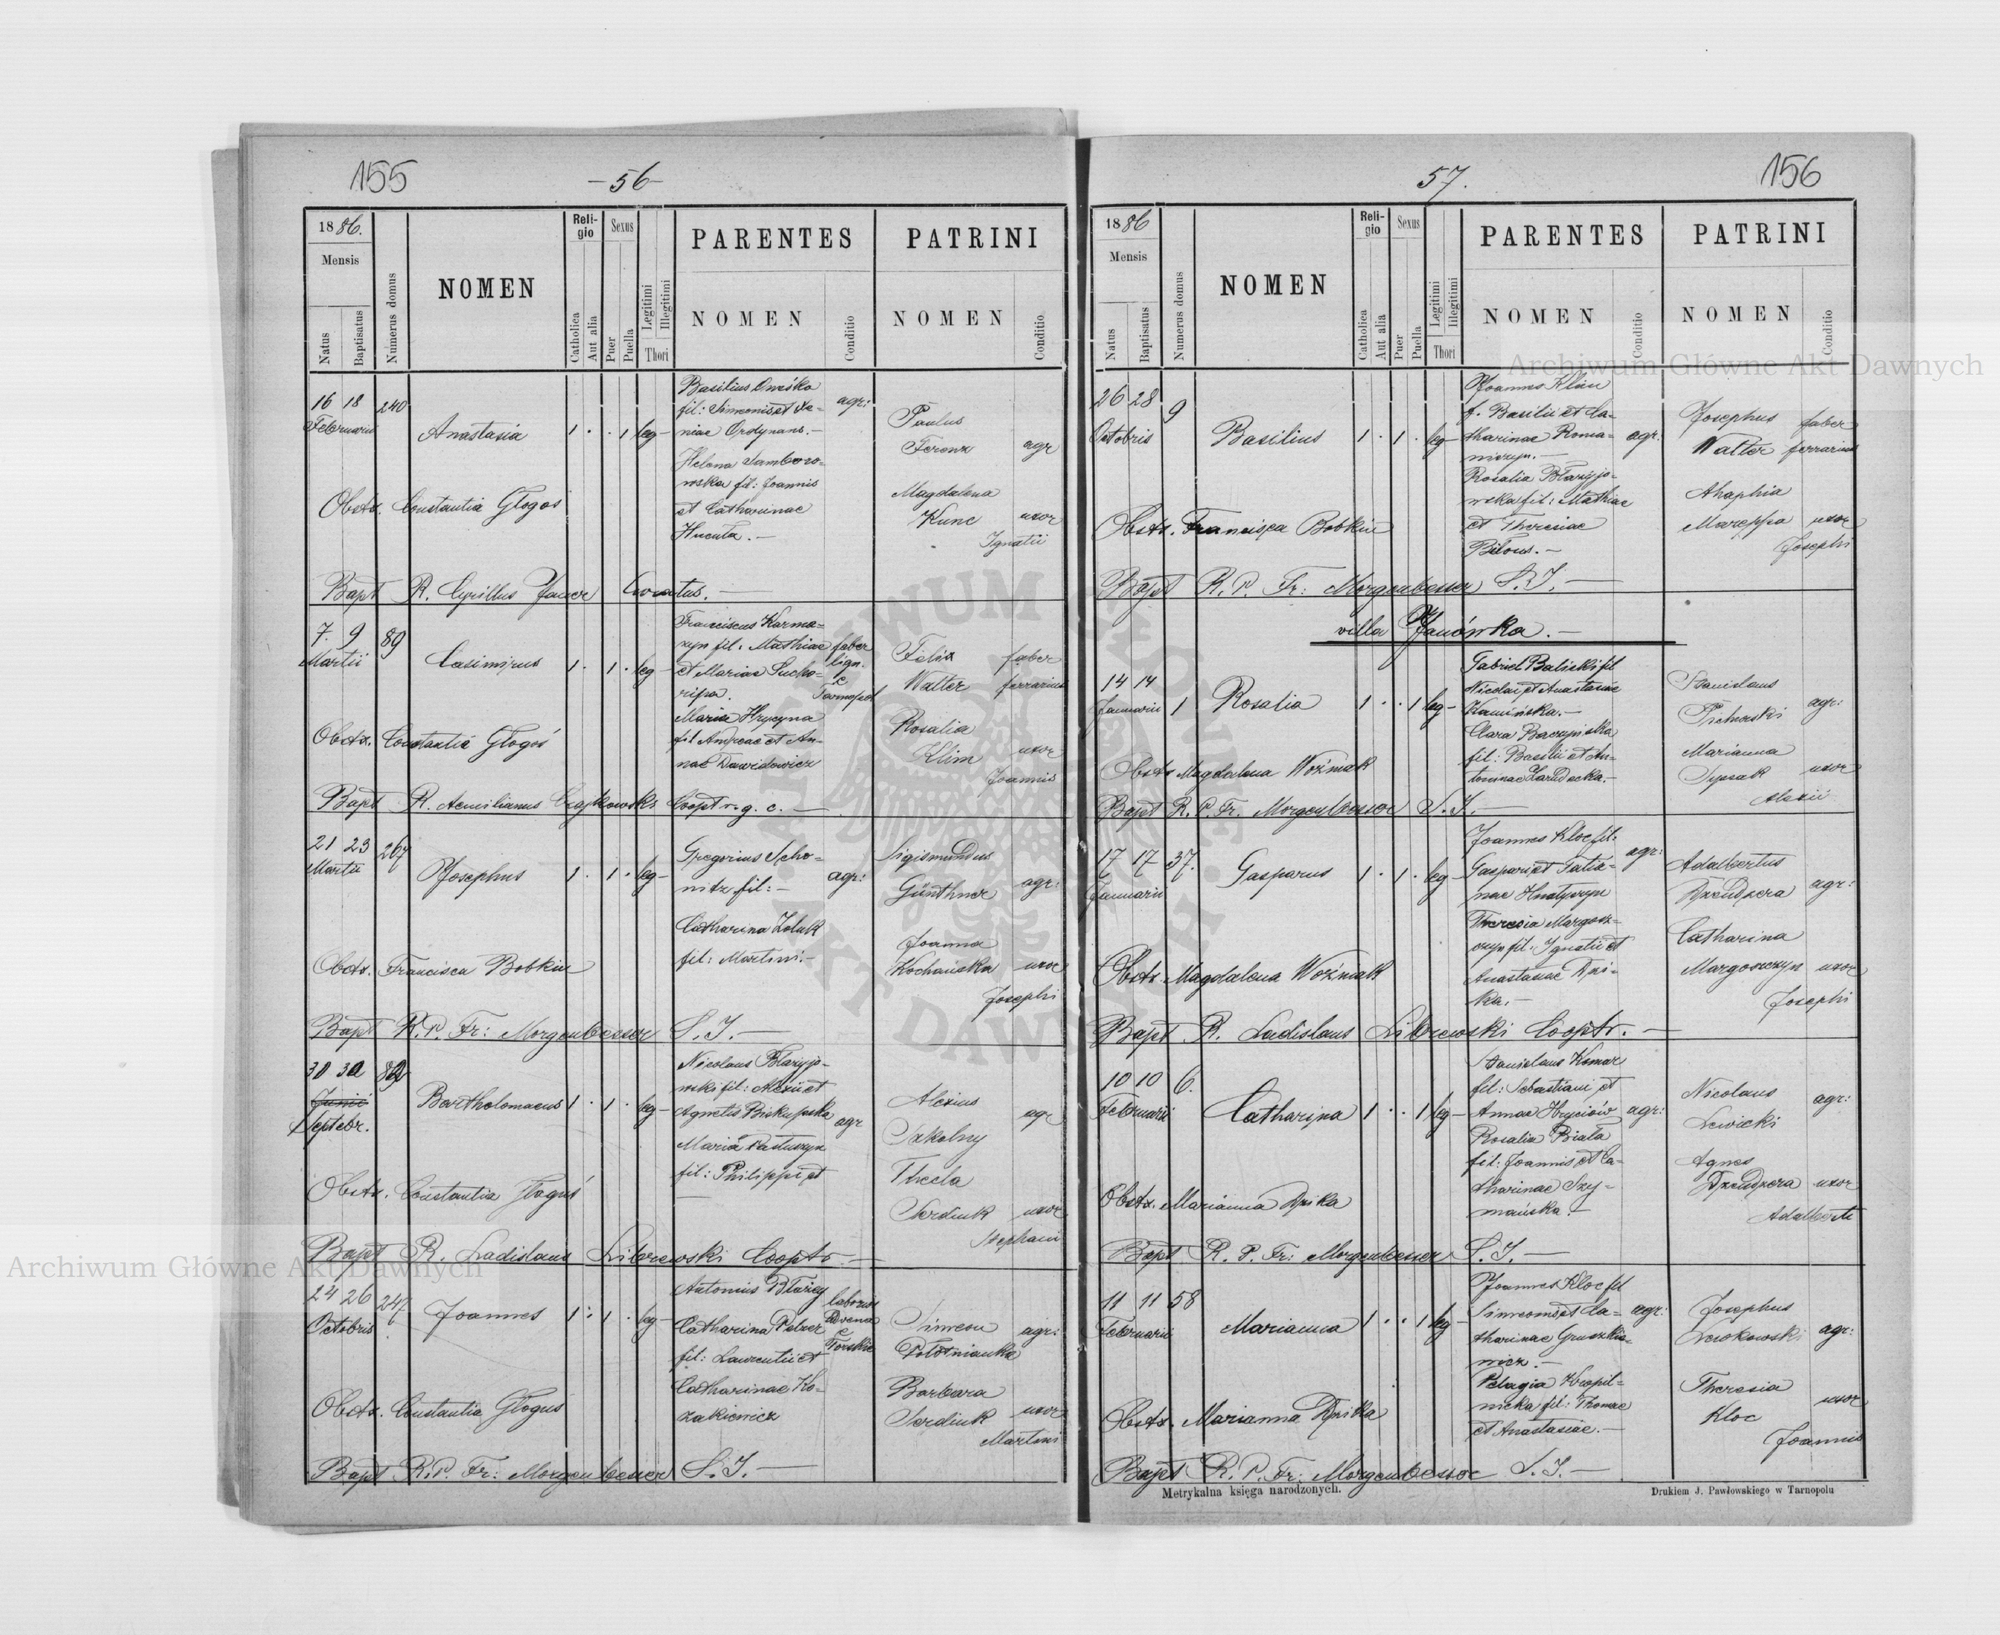 155
-56-
1886.
Mensis
Natus
Baptisatus
Numerus domus
NOMEN
Religio
Catholica
Aut alia
Sexus
Puer
Puella
Legitimi
Illegitimi
Thori
PARENTES
NOMEN
Conditio
PATRINI
NOMEN
Conditio.
16 18 240
Februarii
Anastasia
1 . . 1 leg-
Basilius
fil: Simeonis et Xe-
niae Ordynans.-
Helena Samboro-
wska fil: Joannis
et Catharinae
Hucuta.-
agr:
Paulus
Ferenz agr
Magdalena
Kunc uxor
Ignatii
Obstx. Constantia Głogoś
Bapt R. Cyrillus Curatus.-
7. 9 89
Martii
Casimirus
1 . 1 . leg-
Franciscus Karma-
zyn fil. Mathiae
et Mariae Sucho-
ripa.
Maria Hrycyna
fil Andreae et An-
nae Dawidowicz
faber
lign.
e
Tarnopol
Felix faber
Walter ferrarius
Rosalia
Klim uxor
Joannis
Obstx. Constantia Głogoś
Bapt R. Aemilianus Czajkowski Coopt r. g. c.-
21 23 267
Martii
Josephus
1 . 1 . leg-
Gregorius Scho-
nitz fil:-
Catharina Zaluk
fil: Martini.-
agr:
Sigismundus
Günthner agr:
Joanna
Kochańska uxor
Josephi
Obstx. Francisca Bobkiw
Bapt R. P. Fr: Morgenbesser S. J.-
30 30
Junii
Septebr.
Bartholomaeus
1 . 1 . leg-
Nicolaus Błazyjo-
wski fil: Alexii et
Agnetis Biskupska
Maria Pastuszyn
fil: Philippi et
agr
Alexius agr
Szkolny
Thecla
Serdiuk uxor
Stephani
Obstx. Constantia Głoguś
Bapt R. Ladislaus Librewski Cooptr-
24 26 247
Octobris
Joannes
1 . 1 . leg-
Antonius Błazey
Catharina Pelzer
fil: Laurentii et
Catharinae Ko-
zakiewicz
Simeon agr:
Połotnianka
Barbara
Serdiuk uxor
Martini
Obstx. Constantia Głoguś
Bapt R. P. Fr: Morgenbesser S. J.-
57.
156
1886
Mensis
Natus
Baptisatus
Numerus domus
NOMEN
Religio
Catholica
Aut alia
Sexus
Puer
Puella
Legitimi
Illegitimi
Thori
PARENTES
NOMEN
Conditio
PATRINI
NOMEN
Conditio
26 28 9
Octobris
Basilius
1 . 1 . leg-
Joannes Klim
f. Basilii et Ca-
tharinae Roma-
niszyn.-
Rosalia Błazyjo-
wska fil: Mathiae
et Theresiae
Bilous.-
agr.
Josephus faber
Walter ferrarius
Ahaphia
Mareppa uxor
Josephi
Obstx. Francisca Bobkiw
Bapt R. P. Fr: Morgenbesser S. J.-
villa Janówka.-
14 14
Januarii 1
Rosalia
1 . . 1 leg-
Gabriel Baliski fil
Nicolai et Anastasiae
Kamińska.-
Clara Baczyńska
fil: Basilii et An-
toninae
Stanislaus
agr:
Marianna
Sysak uxor
Alexii
Obstx Magdalena Woźniak
Bapt R. P. Fr. Morgenbesser S. J.-
17 17 37.
Januarii
Gasparus
1 . 1 . leg-
Joannes Kloc fil:
Gaspari et Tatia-
nae Hnatyszyn
Theresia Margosz-
czyn fil. Ignatii et
Anastasiae Dzi-
ka.-
agr:
Adalbertus
Dzendzera agr:
Catharina
Margoszczyn uxor
Josephi
Obstx Magdalena Woźniak
Bapt R. Ladislaus Librewski Cooptr.-
10 10 6.
Februarii
Catharina
1 . . 1 leg-
Stanislaus Komar
fil: Sebastiani et
Annae Hryciów
Rosalia Biała
fil: Joannis et Ca-
tharinae Szy-
mańska.-
agr:
Nicolaus
Lewicki agr:
Agnes
Dzendzera uxor
Adalberti
Obstx. Marianna Dzika
Bapt R. P. Fr: Morgenbesser S. J.-
11 11 58
Februarii
Marianna
1 . . 1 leg-
Joannes Kloc fil
Simeonis et Ca-
tharinae Gruszkie-
wicz.-
Pelagia Kropil-
nicka fil: Thomae
et Anastasiae.-
agr:
Josephus
agr:
Theresia
Kloc uxor
Joannis
Obstx. Marianna Dzika
Bapt R. P. Fr: Morgenbesser S. J.-
Metrykalna księga narodzonych.
Drukiem J. Pawłowskiego w Tarnopolu
Archiwum Główne Akt Dawnych
Archiwum Główne Akt Dawnych